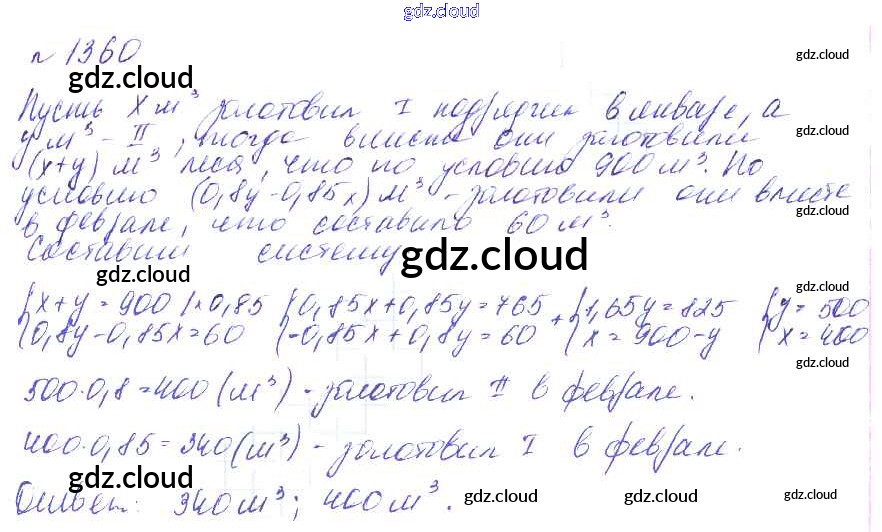 gdz.cloud
n 1360
gdz.cloud
gdz.cloud
Пусть x м³ заготовил I подрядчик в январе, а
y м³ - II, тогда вместе они заготовили
gdz.cloud
(x+y) м³ леса, что по условию 900 м³. По
условию (0,8y-0,85x) м³ - заготовили они вместе
gdz.cloud
в феврале, что составило 60 м³.
Составим систему
gdz.cloud
gdz.cloud
gdz.cloud
{x+y=900 |×0,85 {0,85x+0,85y=765 + {1,65y=825 {y=500
{0,8y-0,85x=60 {-0,85x+0,8y=60 {x=900-y {x=400
gdz.cloud
500·0,8=400 (м³) - заготовил II в феврале.
gdz.cloud
400·0,85=340 (м³) - заготовил I в феврале.
gdz.cloud
Ответ: 340 м³; 400 м³.
gdz.cloud
gdz.cloud
gdz.cloud